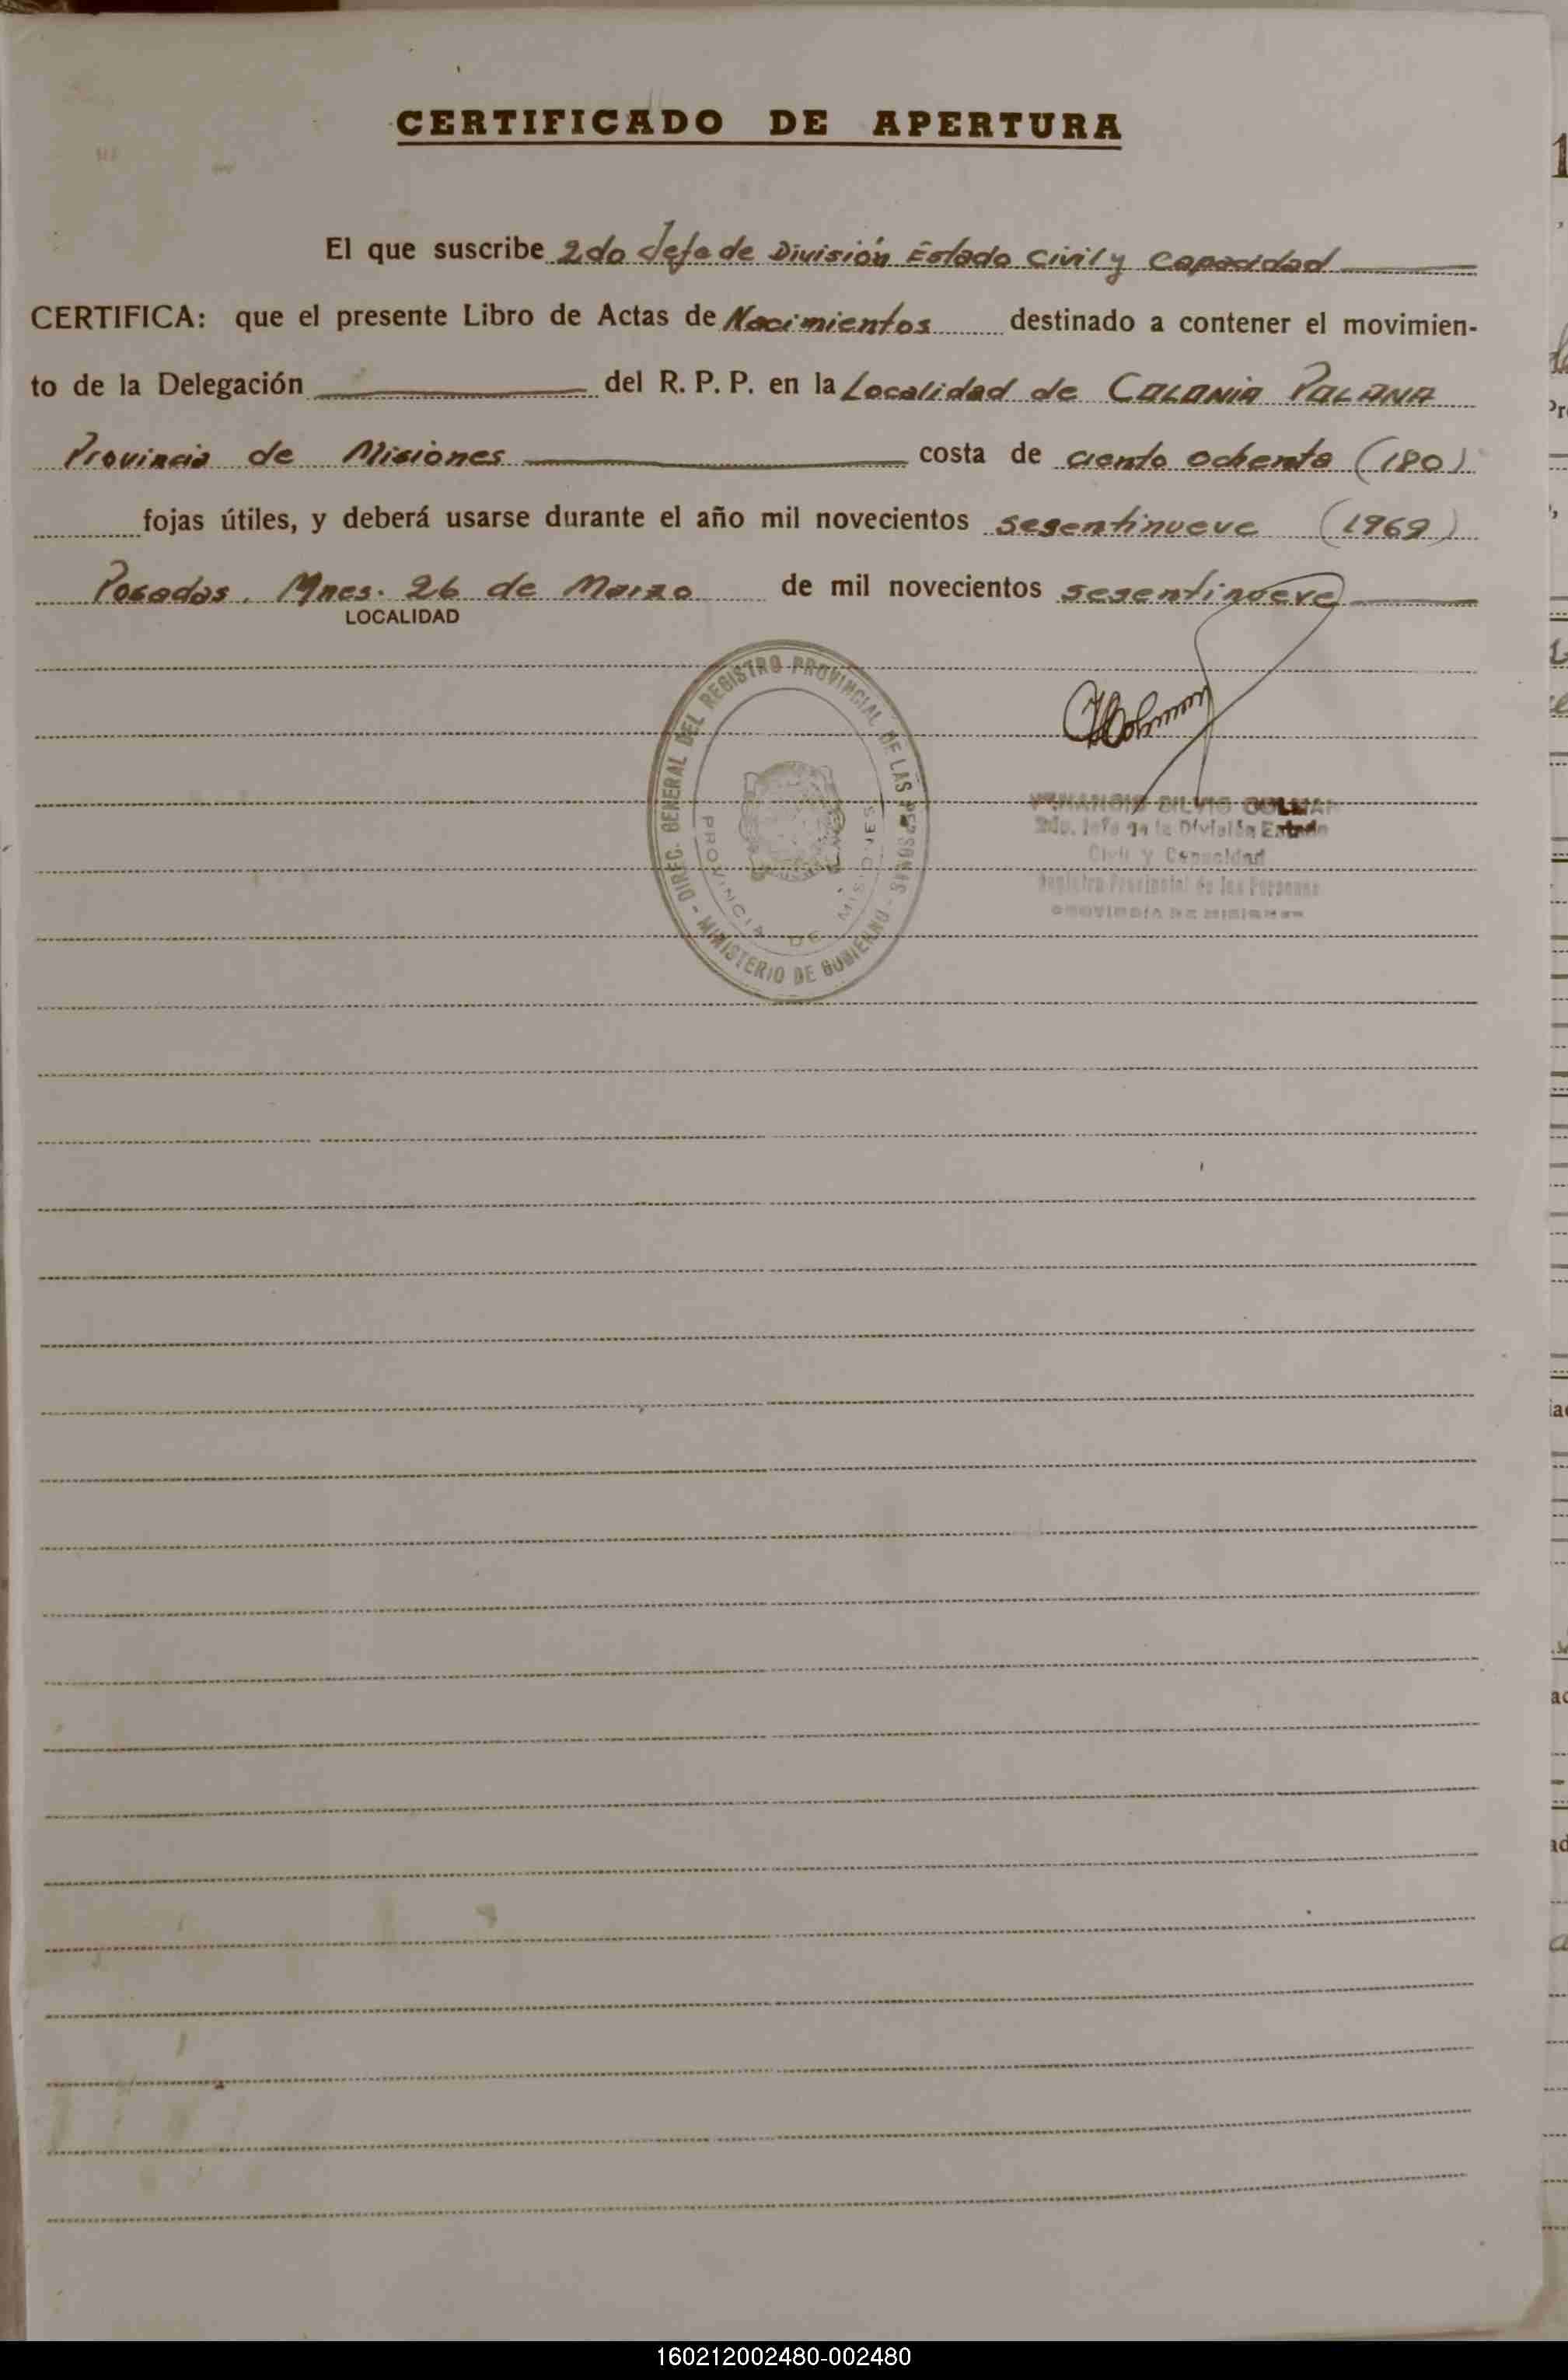 CERTIFICADO DE APERTURA
El que suscribe 2do Jefe de División Estado Civil y Capacidad
CERTIFICA: que el presente Libro de Actas de Nacimientos destinado a contener el movimien-
to de la Delegación del R. P. P. en la Localidad de COLONIA POLANA
Provincia de Misiones costa de ciento ochenta (180)
fojas útiles, y deberá usarse durante el año mil novecientos sesentinueve (1969)
Posadas, Mnes. 26 de Marzo de mil novecientos sesentinueve
LOCALIDAD
DIREC. GENERAL DEL REGISTRO PROVINCIAL DE LAS PERSONAS - MINISTERIO DE GOBIERNO -
PROVINCIA DE MISIONES
VENANCIO SILVIO COLMAN
2do. Jefe de la División Estado
Civil y Capacidad
Registro Provincial de las Personas
PROVINCIA DE MISIONES
160212002480-002480